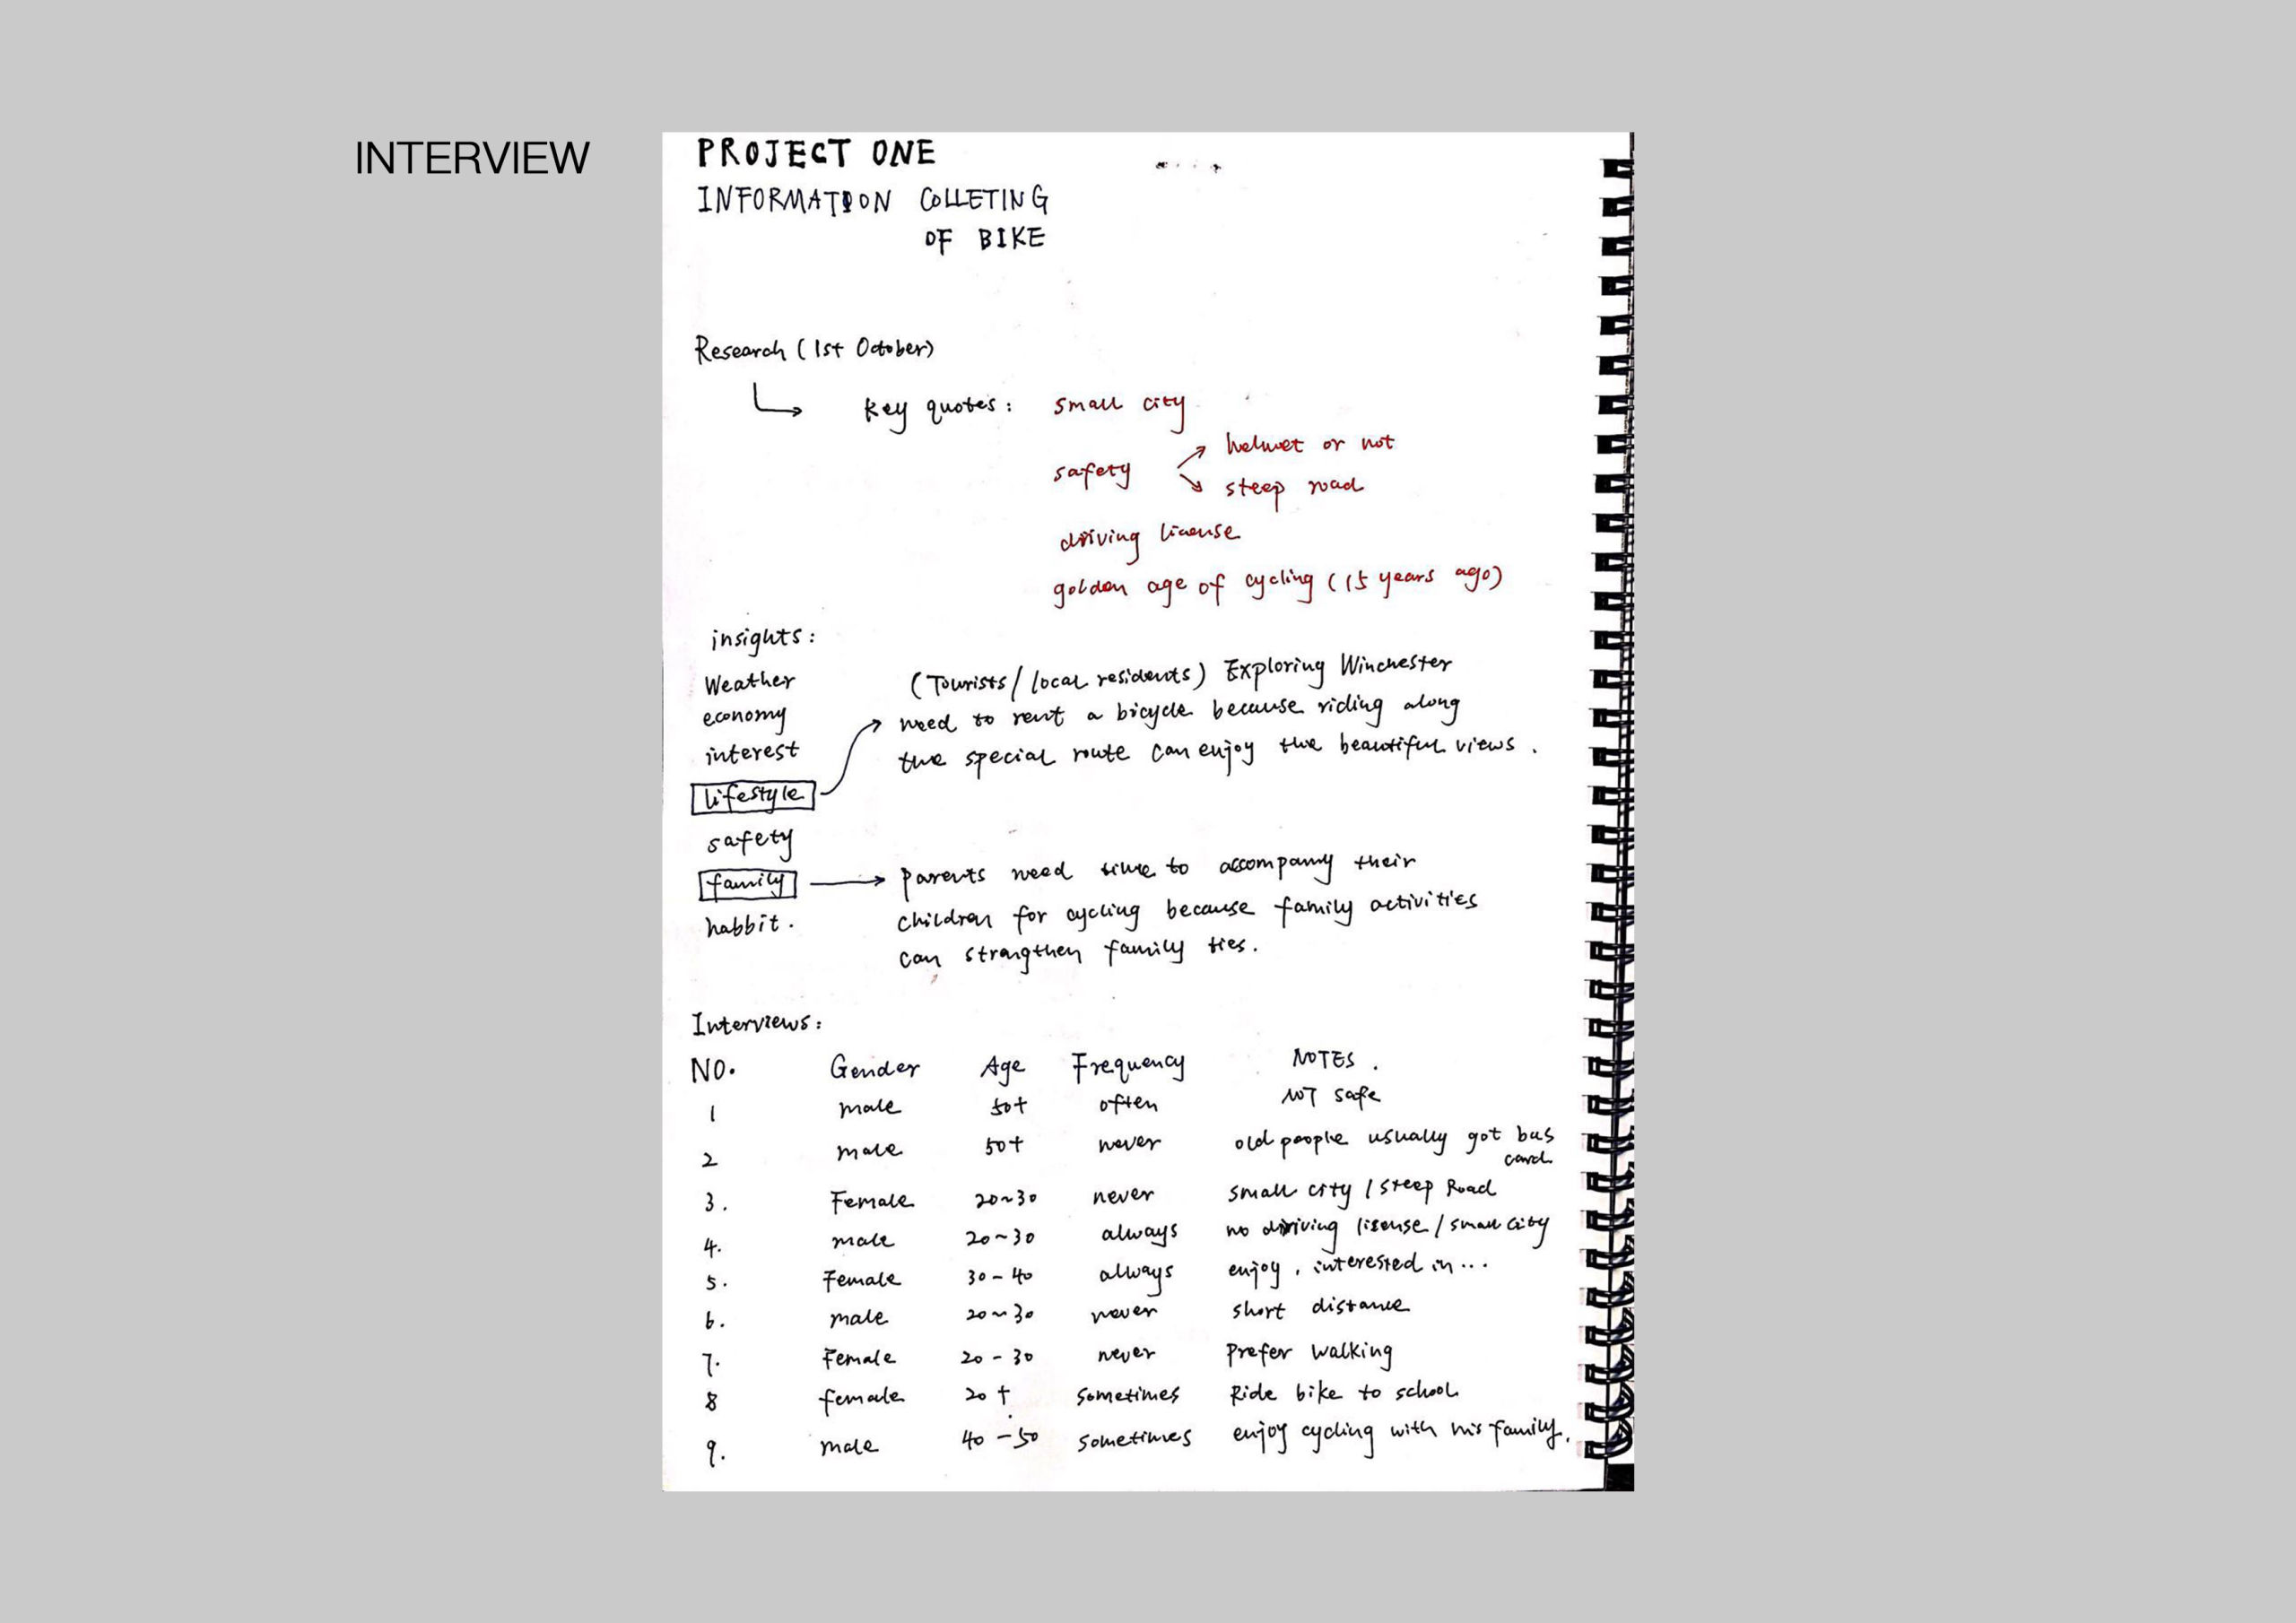 INTERVIEW
PROJECT ONE
INFORMATION COLLETING
OF BIKE
Research (1st October)
key quotes: small city
safety
helmet or not
steep road
driving license
golden age of cycling (15 years ago)
insights:
Weather
economy
interest
lifestyle
safety
family
habbit.
(Tourists/local residents) Exploring Winchester
need to rent a bicycle because riding along
the special route can enjoy the beautiful views.
parents need time to accompany their
children for cycling because family activities
can strengthen family ties.
Interviews:
NO. Gender Age Frequency NOTES.
1 male 50+ often NOT safe
2 male 50+ never old people usually got bus
card
3. Female 20~30 never small city / steep Road
4. male 20~30 always no driving lisense / small city
5. Female 30-40 always enjoy, interested in...
6. male 20~30 never short distance
7. Female 20-30 never Prefer walking
8 female 20+ sometimes Ride bike to school
9. male 40-50 sometimes enjoy cycling with his family.